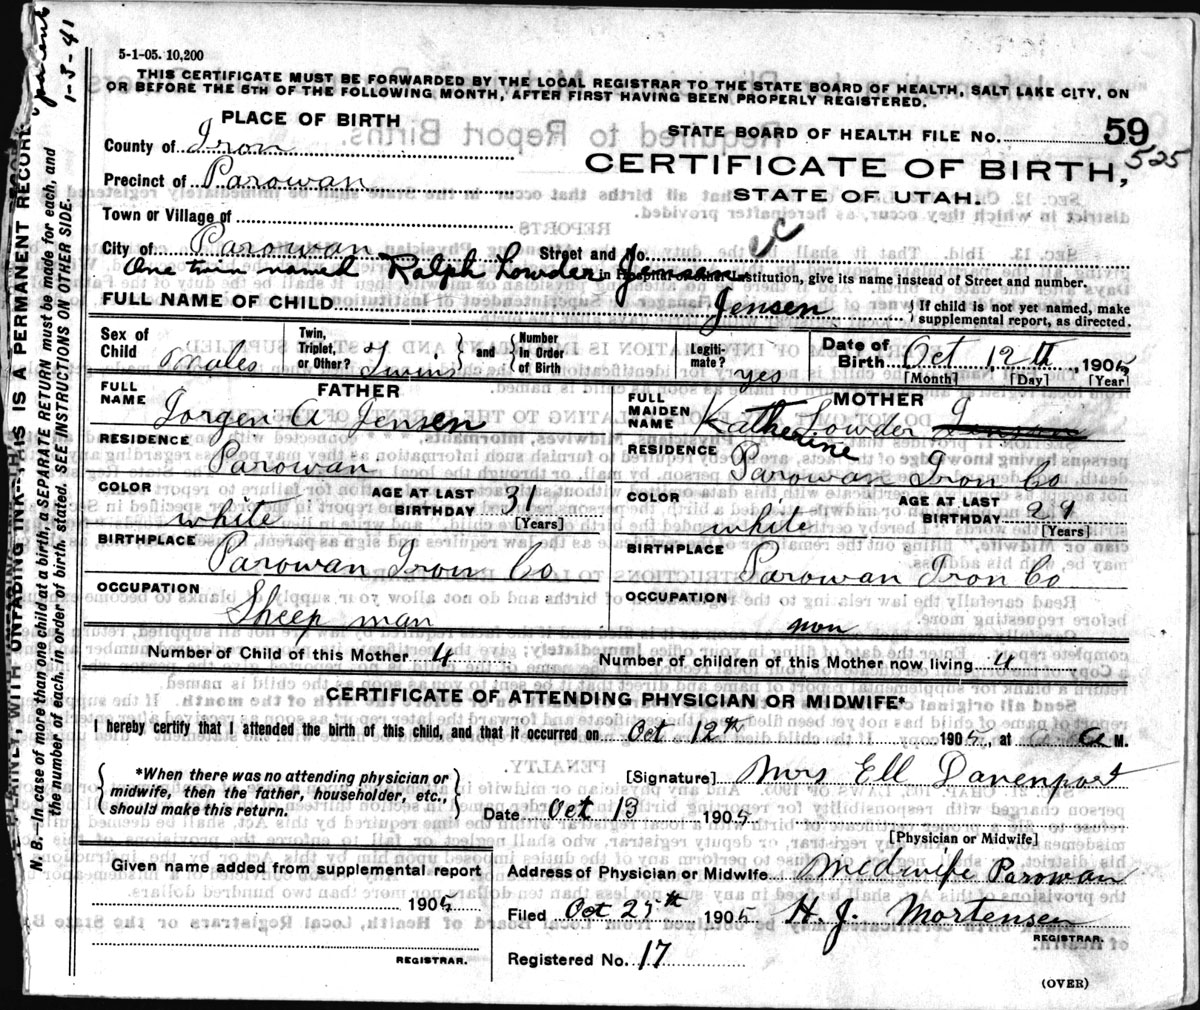 5-1-05. 10,200
THIS CERTIFICATE MUST BE FORWARDED BY THE LOCAL REGISTRAR TO THE STATE BOARD OF HEALTH, SALT LAKE CITY, ON
OR BEFORE THE 5TH OF THE FOLLOWING MONTH, AFTER FIRST HAVING BEEN PROPERLY REGISTERED.
PLACE OF BIRTH
STATE BOARD OF HEALTH FILE NO. 59
525
County of Iron
CERTIFICATE OF BIRTH,
Precinct of Parowan
STATE OF UTAH.
Town or Village of
City of Parowan Street and No.
One twin named Ralph Lowder Jensen
in Hospital or other Institution, give its name instead of Street and number.
FULL NAME OF CHILD Jensen
If child is not yet named, make
supplemental report, as directed.
Sex of Child Males
Twin, Triplet, or Other? Twins
and Number In Order of Birth
Legiti-mate? yes
Date of Birth Oct 12th, 1905
[Month] [Day] [Year]
FATHER
FULL NAME Jorgen A Jensen
MOTHER
FULL MAIDEN NAME Katherine Lowder
RESIDENCE Parowan
RESIDENCE Parowan Iron Co
COLOR white AGE AT LAST BIRTHDAY 31 [Years]
COLOR white AGE AT LAST BIRTHDAY 29 [Years]
BIRTHPLACE Parowan Iron Co
BIRTHPLACE Parowan Iron Co
OCCUPATION Sheep man
OCCUPATION non
Number of Child of this Mother 4
Number of children of this Mother now living 4
CERTIFICATE OF ATTENDING PHYSICIAN OR MIDWIFE*
I hereby certify that I attended the birth of this child, and that it occurred on Oct 12th 1905, at A M.
*When there was no attending physician or
midwife, then the father, householder, etc.,
should make this return.
[Signature] Mrs Ell Davenport
Date Oct 13 1905
[Physician or Midwife]
Given name added from supplemental report
1905
REGISTRAR.
Address of Physician or Midwife Midwife Parowan
Filed Oct 25th 1905 H. J. Mortensen
REGISTRAR.
Registered No. 17
(OVER)
PLAINLY, WITH UNFADING INK—THIS IS A PERMANENT RECORD
N. B.—In case of more than one child at a birth, a SEPARATE RETURN must be made for each, and
the number of each, in order of birth, stated. SEE INSTRUCTIONS ON OTHER SIDE.
parent
1-3-41